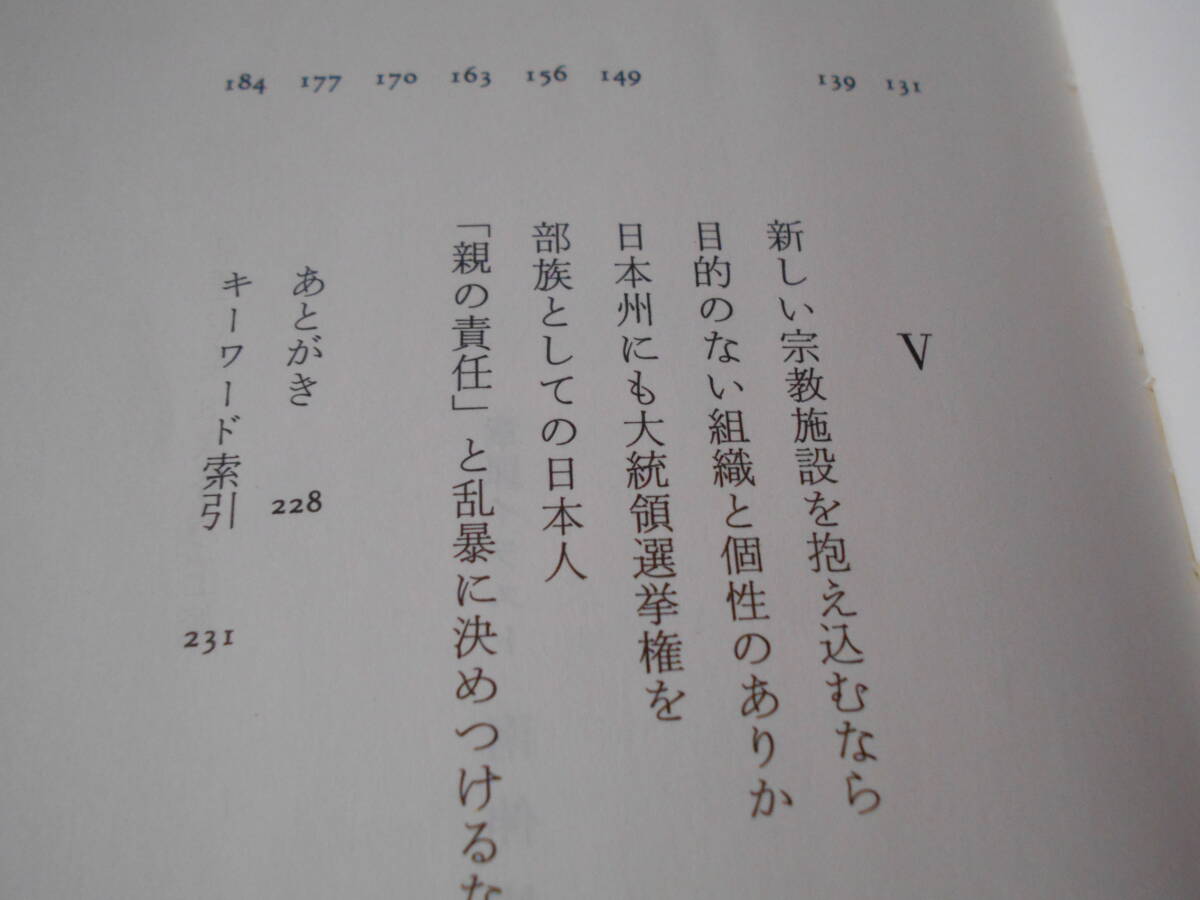 131
139
149
156
163
170
177
184
V
新しい宗教施設を抱え込むなら
目的のない組織と個性のありか
日本州にも大統領選挙権を
部族としての日本人
「親の責任」と乱暴に決めつけるな
あとがき 228
キーワード索引 231